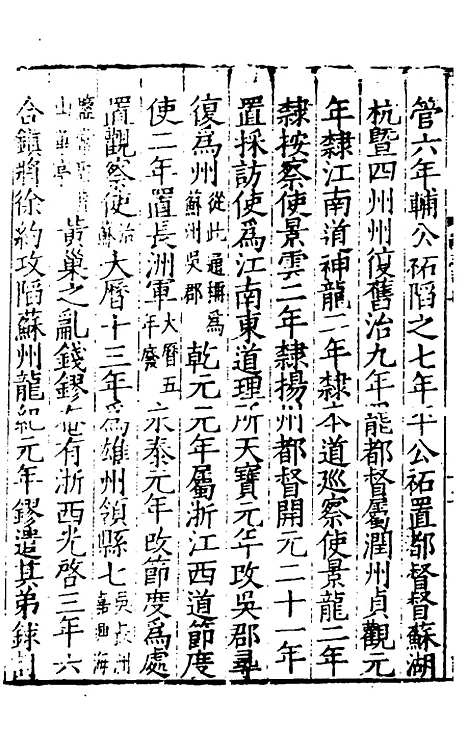 管六年輔公祏陷之七年平公祏置都督督蘇湖
杭暨四州州復舊治九年罷都督屬潤州貞觀元
年隸江南道神龍二年隸本道巡察使景龍二年
隸按察使景雲二年隸揚州都督開元二十一年
置採訪使為江南東道理所天寶元年改吳郡尋
復為州從此通稱為蘇州吳郡乾元元年屬浙江西道節度
使二年置長洲軍大曆五年廢永泰元年改節度為處
置觀察使治蘇大曆十三年為雄州領縣七吳長洲嘉興海
鹽山華亭黃巢之亂錢鏐有浙西光啓三年六
合鎮將徐約攻陷蘇州龍紀元年鏐遣其弟銶